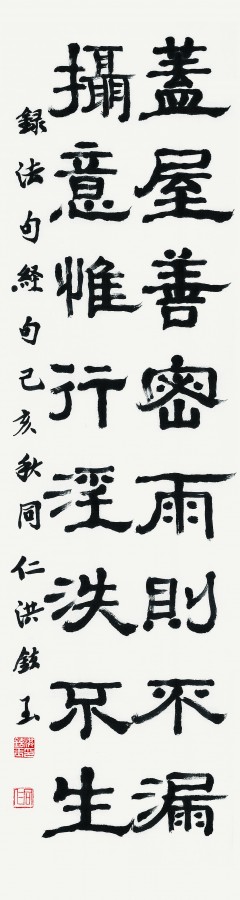 蓋屋善密雨則不漏
攝意惟行淫泆不生
録法句経句己亥秋同仁洪鉉玉